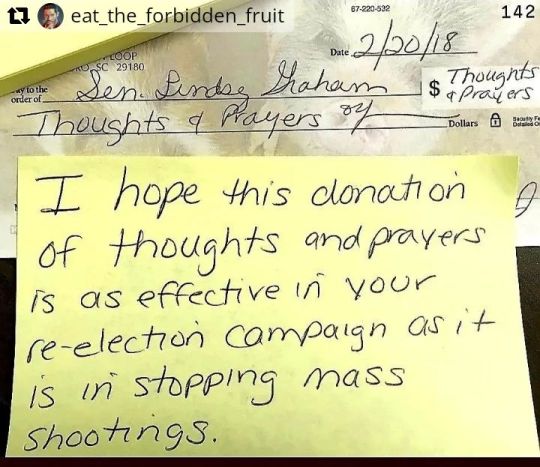 eat_the_forbidden_fruit
67-220-532
142
LOOP
SC 29180
Date 2/20/18
to the
order of Sen. Lindsey Graham $ Thoughts & Prayers
Thoughts & Prayers Dollars
I hope this donation
of thoughts and prayers
is as effective in your
re-election campaign as it
is in stopping mass
shootings.